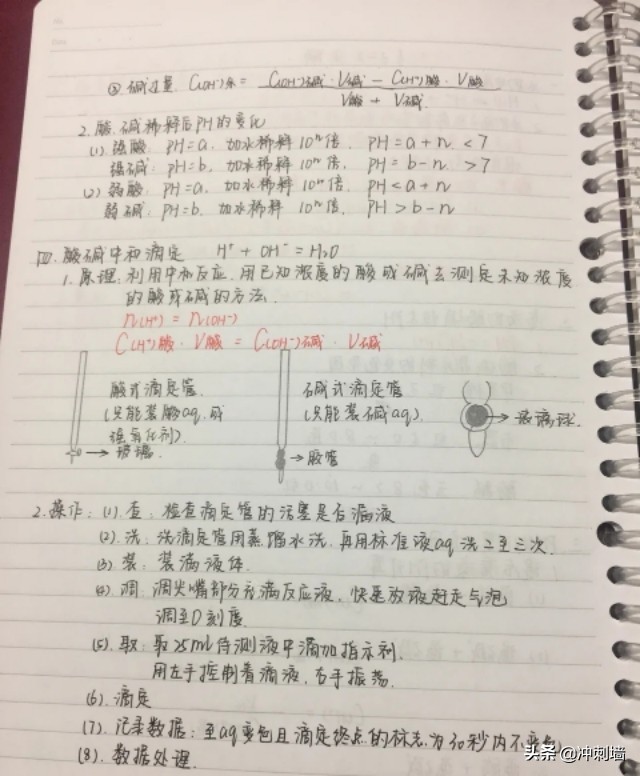 ③.碱过量. C(OH⁻)余 = C(OH⁻)碱·V碱 − C(H⁺)酸·V酸 / V酸 + V碱.
2. 酸、碱稀释后PH的变化
(1). 强酸: PH=a, 加水稀释 10ⁿ倍, PH=a+n <7
强碱: PH=b, 加水稀释 10ⁿ倍, PH=b-n >7
(2). 弱酸: PH=a, 加水稀释 10ⁿ倍, PH<a+n
弱碱: PH=b, 加水稀释 10ⁿ倍, PH>b-n
四. 酸碱中和滴定 H⁺ + OH⁻ = H₂O
1. 原理: 利用中和反应, 用已知浓度的酸或碱去测定未知浓度
的酸或碱的方法.
n(H⁺) = n(OH⁻)
C(H⁺)酸·V酸 = C(OH⁻)碱·V碱
酸式滴定管.
(只能装酸aq, 或
强氧化剂).
→玻璃.
碱式滴定管
(只能装碱aq).
→胶管
→玻璃球.
2. 操作: (1). 查: 检查滴定管的活塞是否漏液
(2). 洗: 洗滴定管用蒸馏水洗, 再用标准液aq 洗二至三次.
(3). 装: 装满液体.
(4). 调: 调尖嘴部分充满反应液, 快速放液赶走气泡
调至0刻度.
(5). 取: 取25mL待测液中滴加指示剂.
用左手控制着滴液, 右手振荡.
(6). 滴定
(7). 记录数据: 至aq变色且滴定终点的标志为30秒内不变色
(8). 数据处理.
头条 @冲刺墙